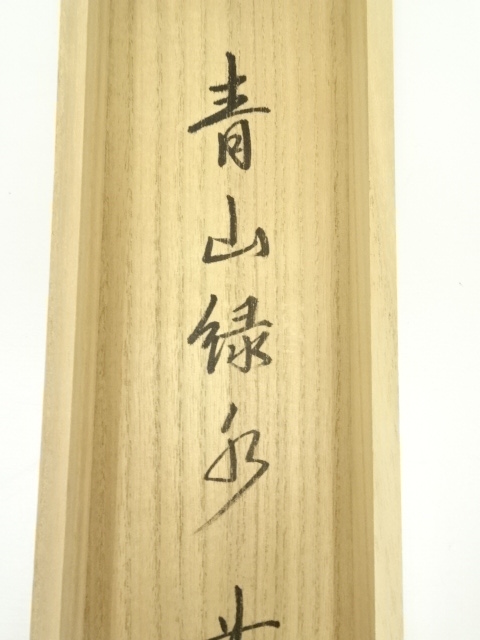 青山緑水